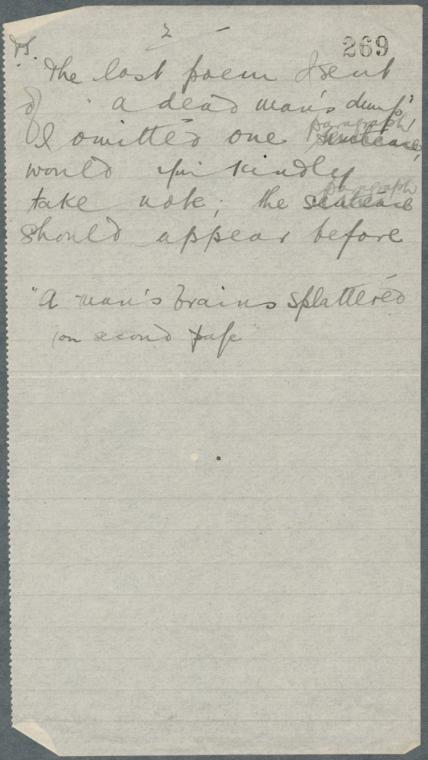 2 -
269
P.S.
The last poem I sent
of "a dead man's dump"
I omitted one sentence, paragraph
would you kindly
take note; the sentence paragraph
should appear before
"A man's brains splattered
(on second page